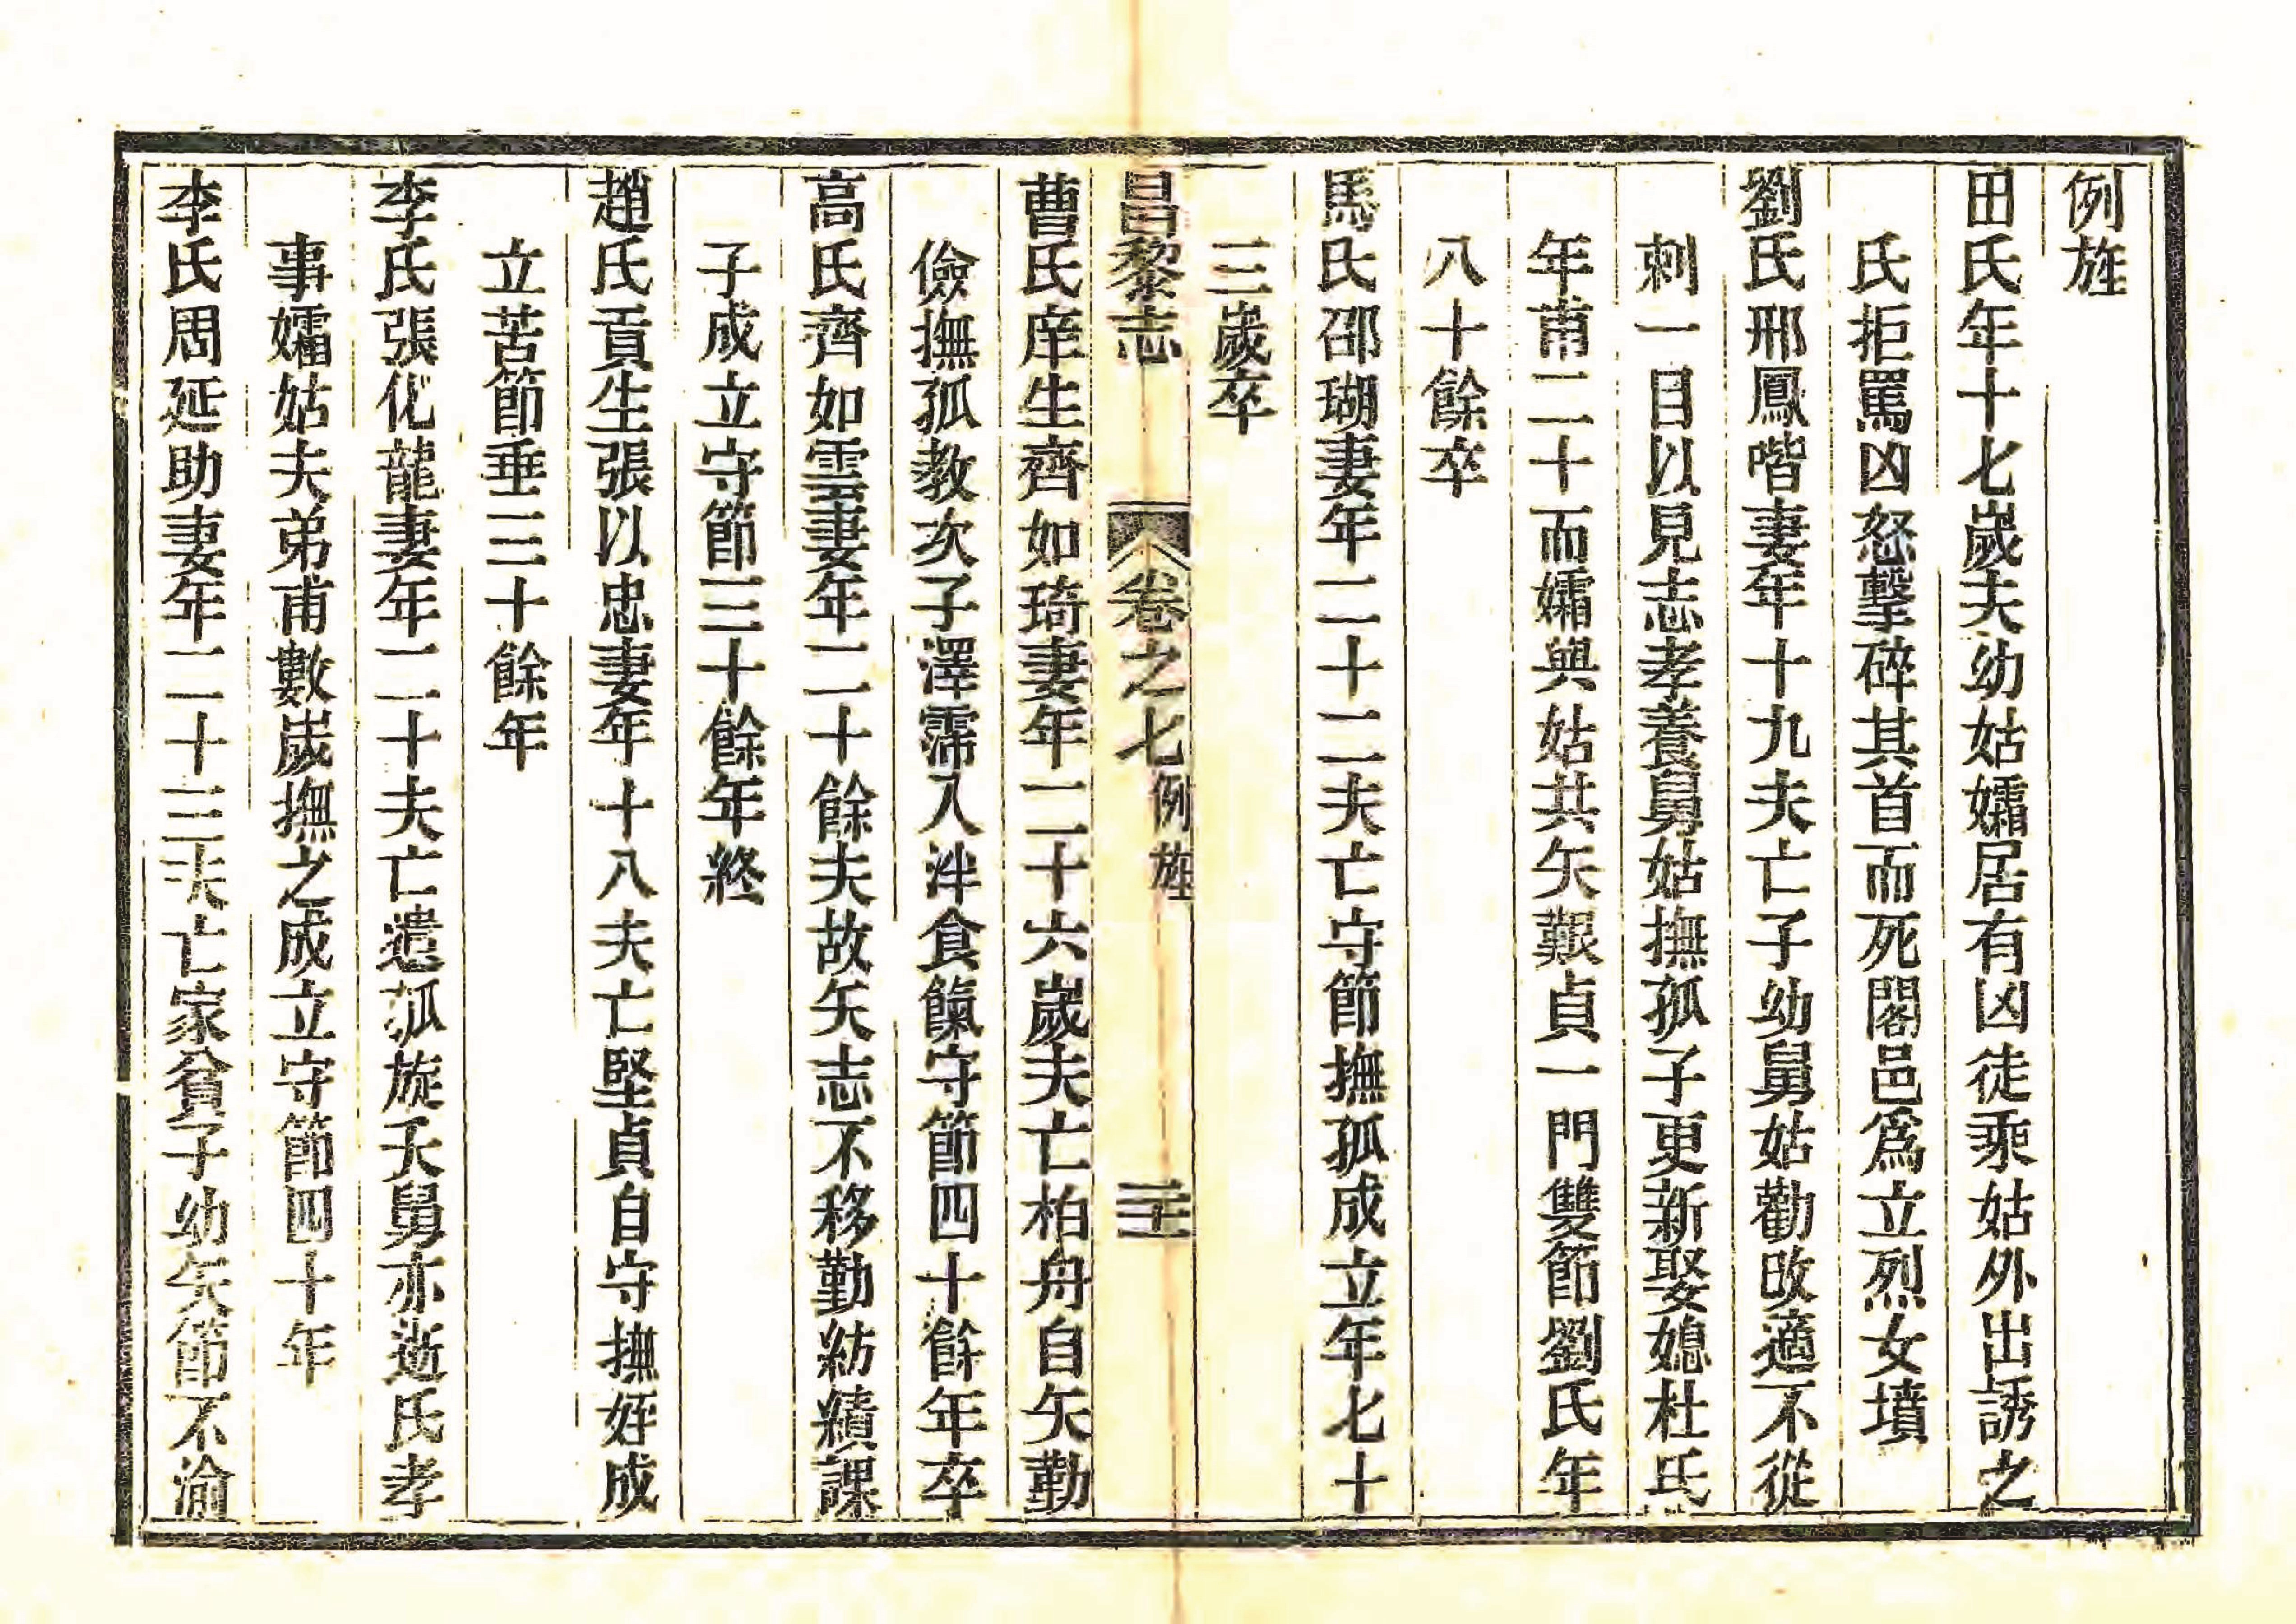 例旌
田氏年十七歲夫幼姑孀居有凶徒乘姑外出誘之
氏拒罵凶怒擊碎其首而死闔邑爲立烈女墳
劉氏邢鳳喈妻年十九夫亡子幼舅姑勸改適不從
刺一目以見志孝養舅姑撫孤子更新娶媳杜氏
年甫二十而孀與姑共矢艱貞一門雙節劉氏年
八十餘卒
馬氏邵瑚妻年二十二夫亡守節撫孤成立年七十
三歲卒
昌黎志 卷之七 例旌 三十一
曹氏庠生齊如琦妻年二十六歲夫亡柏舟自矢勤
儉撫孤教次子澤霈入泮食餼守節四十餘年卒
高氏齊如雲妻年二十餘夫故矢志不移勤紡績課
子成立守節三十餘年終
趙氏貢生張以忠妻年十八夫亡堅貞自守撫姪成
立苦節垂三十餘年
李氏張化龍妻年二十夫亡遺孤旋夭舅亦逝氏孝
事孀姑夫弟甫數歲撫之成立守節四十年
李氏周延助妻年二十三夫亡家貧子幼矢節不渝